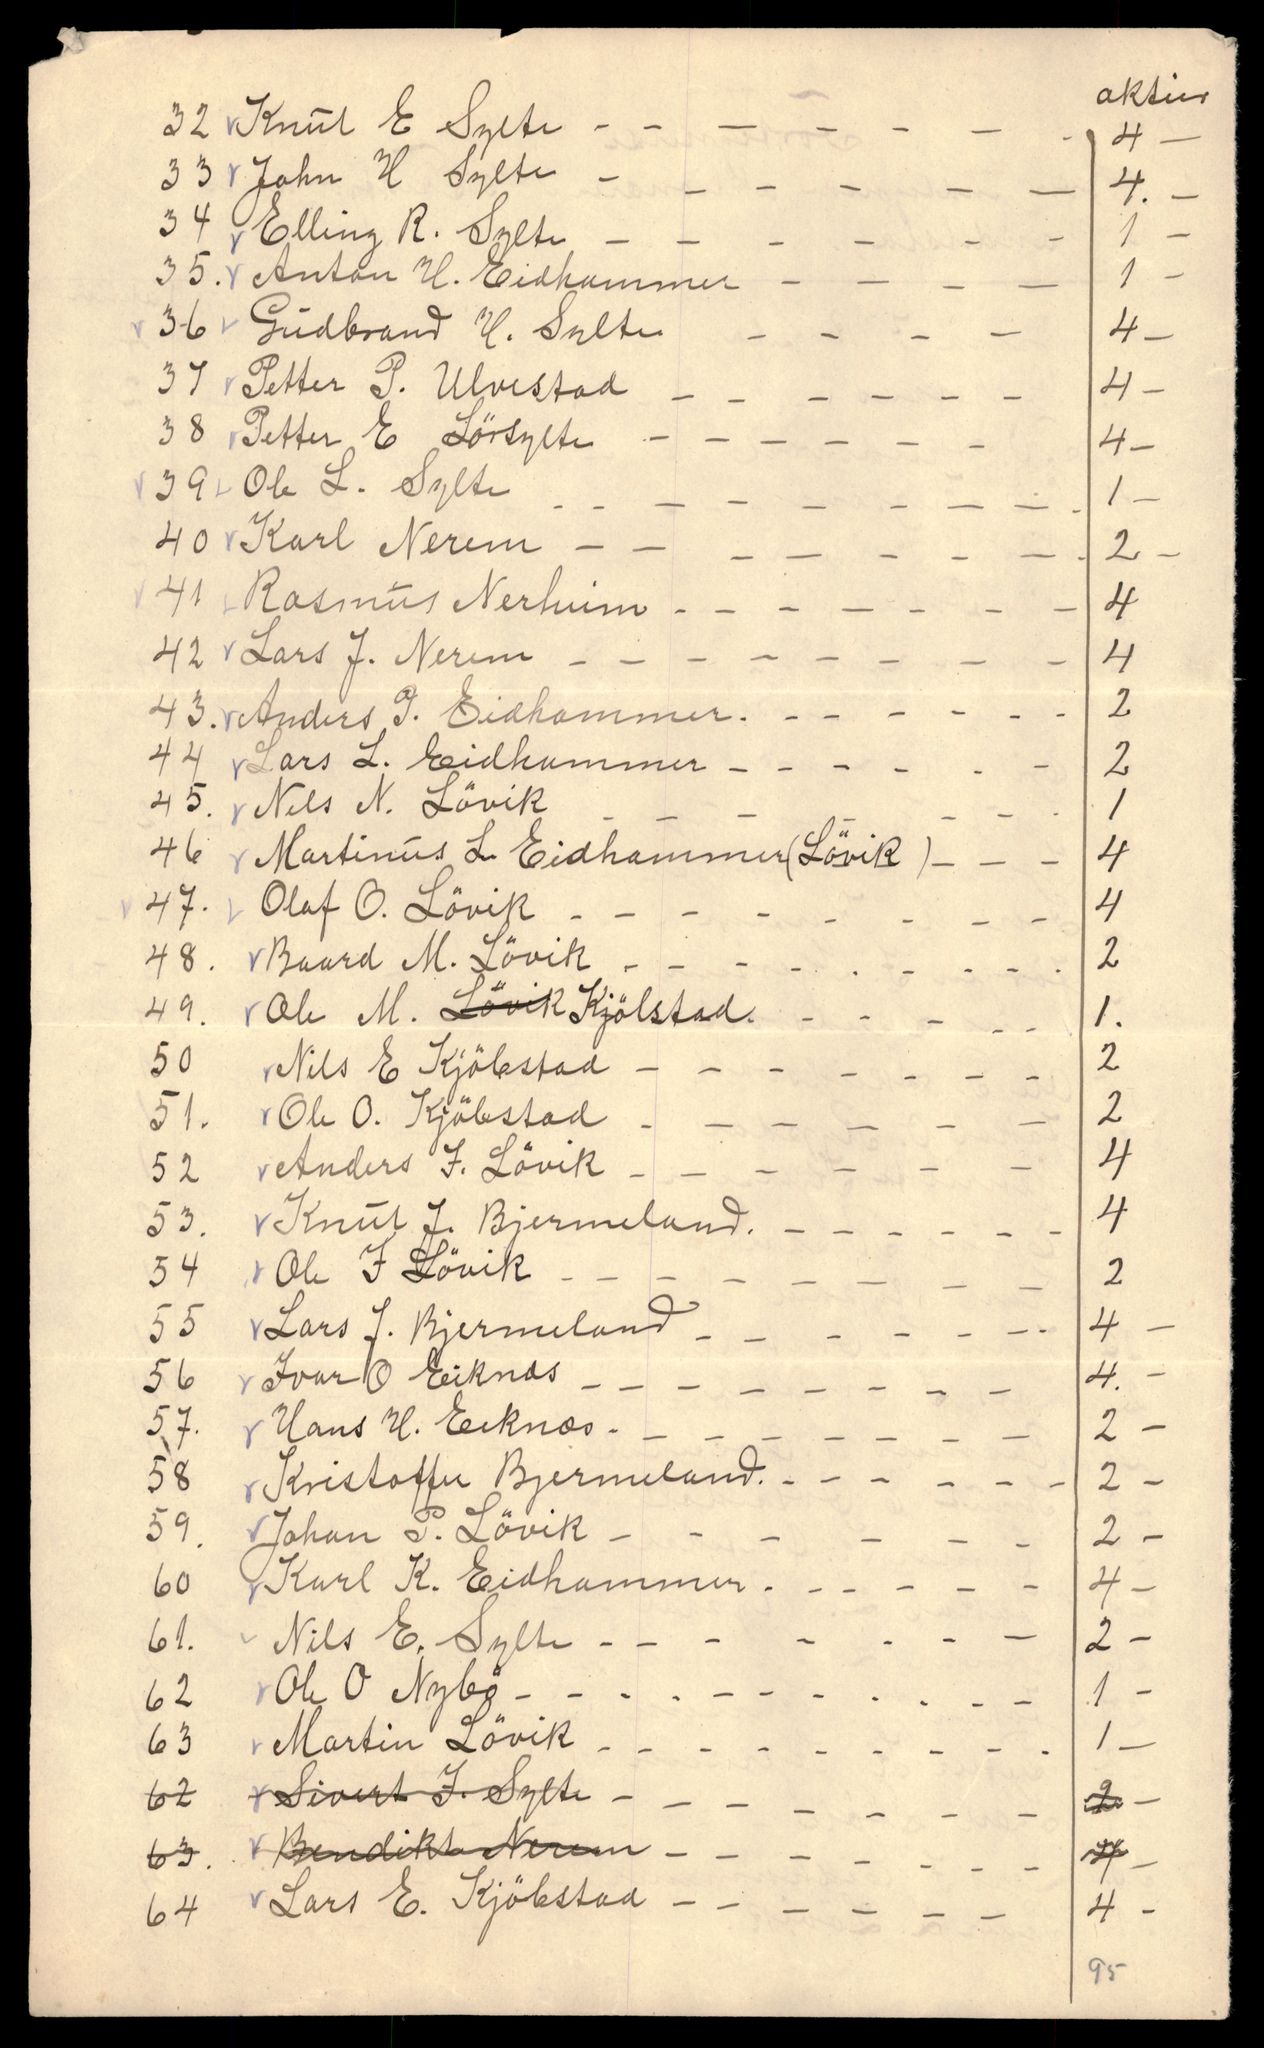 aktier
32 v Knut E Sylte - - - - - - - 4 -
33 v John H Sylte - - - - - - 4. -
34 v Elling R. Sylte - - - - - - 1 -
35. v Anton H. Eidhammer - - - - - 1 -
v 36 v Gudbrand H. Sylte - - - - 4 -
37 v Petter P. Ulvestad - - - - - - 4 -
38 v Petter E Lörsylte - - - - - - 4 -
v 39 v Ole L. Sylte - - - - - - - - 1 -
40 v Karl Nerem - - - - - - - - 2 -
v 41 v Rasmus Nerheim - - - - - - - 4
42 v Lars J. Nerem - - - - - - - - 4
43. v Anders P. Eidhammer. - - - - - - 2
44 v Lars L. Eidhammer - - - - - - 2
45. v Nils N. Lövik - - - - - - - 1
46 v Martinus L. Eidhammer (Lövik) - - - 4
v 47. v Olaf O. Lövik - - - - - - - - 4
48. v Baard M. Lövik - - - - - - - - 2
49. v Ole M. Lövik Kjölstad. - - - - - 1.
50 v Nils E Kjölstad - - - - - - - 2
51. v Ole O. Kjölstad - - - - - - 2
52 v Anders F. Lövik - - - - - - - 4
53. v Knut J. Bjermeland. - - - - - - 4
54 v Ole F Lövik - - - - - - - - 2
55 v Lars J. Bjermeland - - - - - - - 4 -
56 v Ivar O Eiknas - - - - - - - - 4. -
57. v Hans H. Eiknas - - - - - - - - 2 -
58 v Kristoffer Bjermeland. - - - - - - 2 -
59. v Johan P. Lövik - - - - - - 2 -
60 v Karl K. Eidhammer - - - - - - 4 -
61. v Nils E. Sylte - - - - - - - 2 -
62 v Ole O Nybö - - - - - - - - - - 1 -
63 v Martin Lövik - - - - - - - - - 1 -
62 v Sivert F. Sylte - - - - - - - - 2 -
63. v Bendikt Nerem - - - - - - - - 4 -
64 v Lars E. Kjölstad - - - - - - 4 -
95